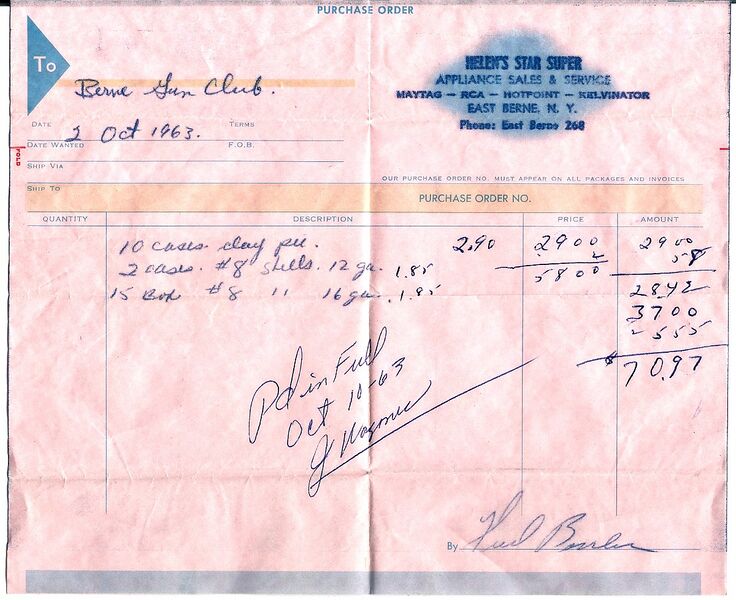 PURCHASE ORDER
To
Berne Gun Club.
HELEN'S STAR SUPER
APPLIANCE SALES & SERVICE
MAYTAG - RCA - HOTPOINT - KELVINATOR
EAST BERNE, N. Y.
Phone: East Berne 268
DATE 2 Oct 1963. TERMS
DATE WANTED F.O.B.
SHIP VIA
FOLD
OUR PURCHASE ORDER NO. MUST APPEAR ON ALL PACKAGES AND INVOICES
SHIP TO
PURCHASE ORDER NO.
QUANTITY DESCRIPTION PRICE AMOUNT
10 cases clay 2.90 2900 2900
2 cases. #8 shells. 12 ga. 1.85 2 58
5800
15 Box #8 " 16 ga. 1.85 2842
3700
555
$ 70.97
Pd in Full
Oct 10-63
By